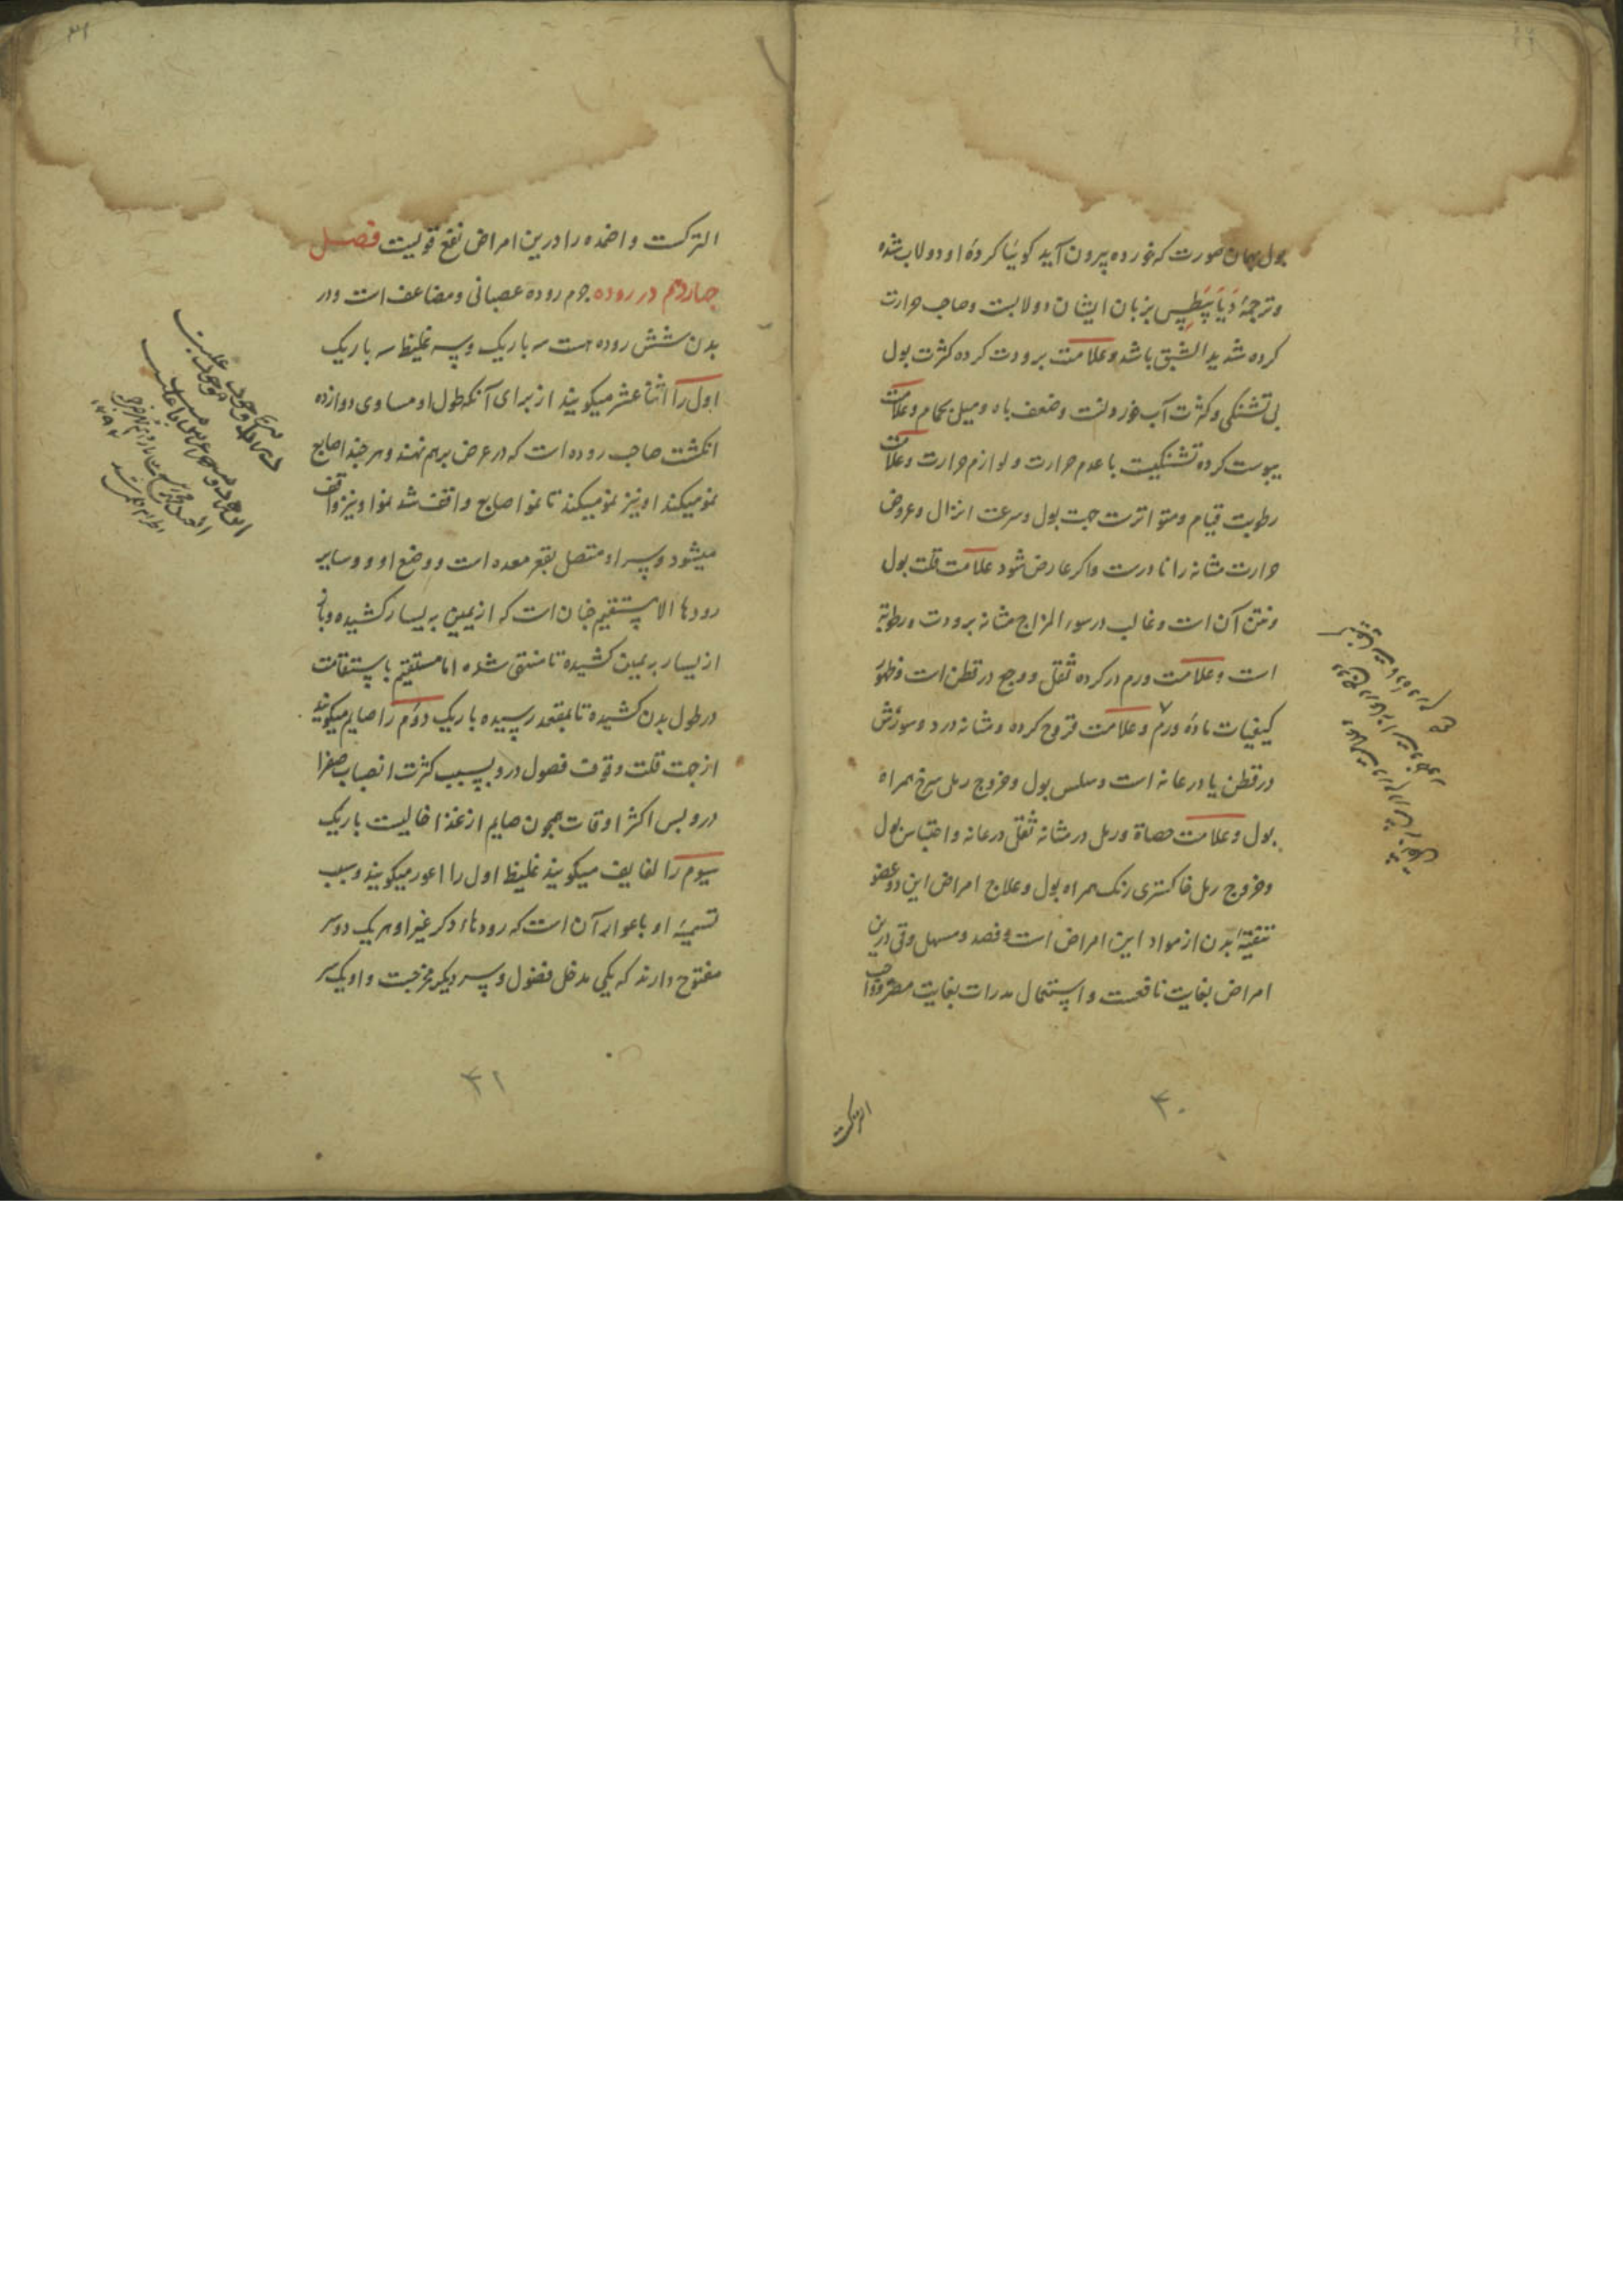 بول بهمان صورت که خورده بیرون آید کوییا کرده او دولاب شده
وترجمهٔ دَیَابَیَطِس بزبان ایشان دولابست وصاحب حرارت
کرده شدید الشبق باشد وعلامت برودت کرده کثرت بول
بی تشنکی وکثرت آب خوردنست وضعف باه ومیل بحمام وعلامت
یبوست کرده تشنکیست با عدم حرارت ولوازم حرارت وعلامت
رطوبت قیام ومتواترست جهت بول وسرعت انزال وعروض
حرارت مثانه را نادرست واکر عارض شود علامت قلت بول
ونتن آن است وغالب در سوء المزاج مثانه برودت ورطوبة
است وعلامت ورم در کرده ثقل ووجع در قطن است وظهور
کیفیات ماده ورم وعلامت قروح کرده ومثانه درد وسوزش
در قطن یا در عانه است وسلس بول وخروج رمل سرخ همراه
بول وعلامت حصاة ورمل در مثانه ثقل در عانه واحتباس بول
وخروج رمل خاکستری رنک همراه بول وعلاج امراض این دو عضو
تنقیهٔ بدن از مواد این امراض است وفصد ومسهل وقی درین
امراض بغایت نافعست واستعمال مدرات بغایت مضر وواجب
الترکست
۴۰
۳۱
الترکست واضمده را درین امراض نفع قویست فصل
چهاردهم در روده جرم روده عصبانی ومضاعف است ودر
بدن شش روده هست سه باریک وسه غلیظ سه باریک
اول را اثنا عشر میکویند از برای آنکه طول او مساوی دوازده
انکشت صاحب روده است که در عرض برهم نهند وهر چند اصابع
نمو میکند او نیز نمو میکند تا نمو اصابع واقف شد نمو او نیز واقف
میشود وسر او متصل بقعر معده است ووضع او و وسایر
رودها الا مستقیم چنان است که از یمین به یسار کشیده وباز
از یسار به یمین کشیده تا منتهی شده اما مستقیم باستقامت
در طول بدن کشیده تا بمقعد رسیده باریک دوم را صایم میکویند
از جهت قلت وقوف فضول درو بسبب کثرت انصباب صفرا
درو پس اکثر اوقات همچون صایم از غذا خالیست باریک
سیوم را لفایف میکویند غلیظ اول را اعور میکویند وسبب
تسمیهٔ او باعوار آن است که رودهاء دکر غیر او هر یک دو سر
مفتوح دارند که یکی مدخل فضول وسر دیکر مخرجست واو یک سر
۴۱